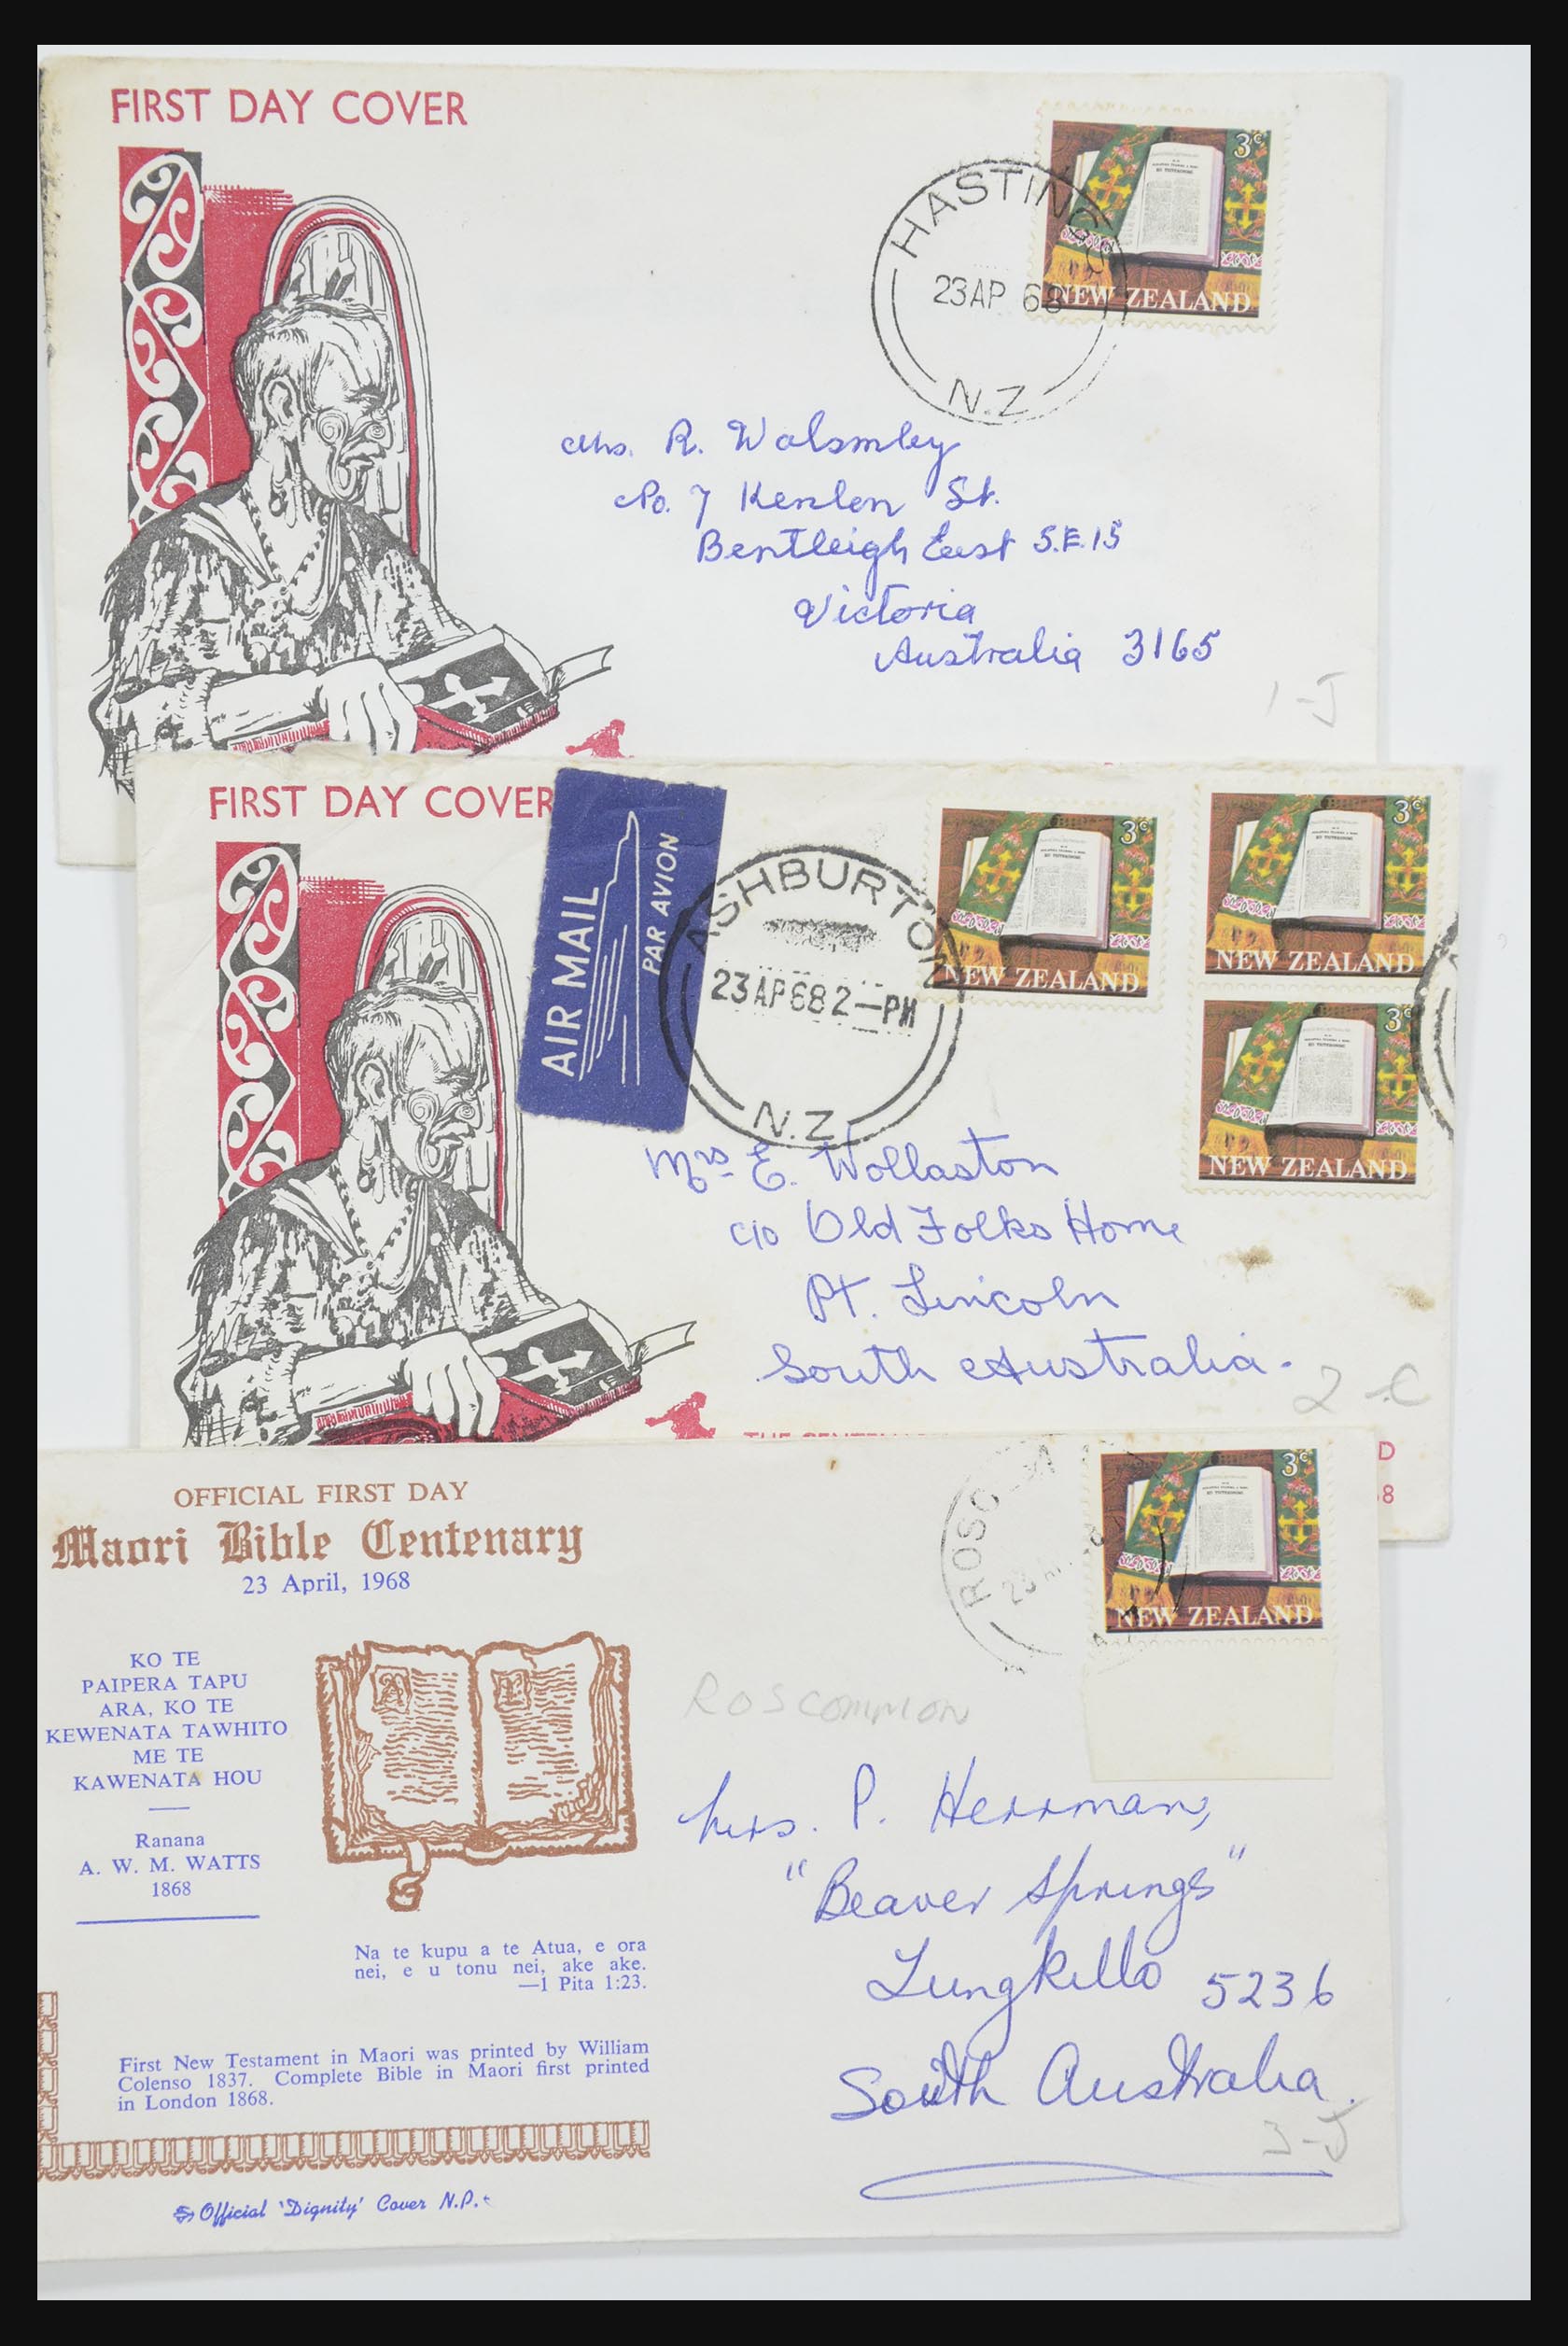 FIRST DAY COVER
3c
HASTINGS
23 AP 68
NEW ZEALAND
N.Z
Mrs. R. Walsmley
7 St.
Bentleigh East S.E.15
Victoria
Australia 3165
1-J
FIRST DAY COVER
AIR MAIL
PAR AVION
ASHBURTON
23 AP 68 2—PM
N.Z
3c
NEW ZEALAND
3c
NEW ZEALAND
3c
NEW ZEALAND
Mrs E. Wollaston
c/o Old Folks Home
Pt. Lincoln
South Australia.
2-C
D
8
OFFICIAL FIRST DAY
Maori Bible Centenary
23 April, 1968
3c
NEW ZEALAND
KO TE
PAIPERA TAPU
ARA, KO TE
KEWENATA TAWHITO
ME TE
KAWENATA HOU
Ranana
A. W. M. WATTS
1868
Na te kupu a te Atua, e ora
nei, e u tonu nei, ake ake.
—1 Pita 1:23.
First New Testament in Maori was printed by William
Colenso 1837. Complete Bible in Maori first printed
in London 1868.
Official 'Dignity' Cover N.P.
ROSCOMMON
Mrs. P. Herrman,
"Beaver Springs"
Tungkillo 5236
South Australia.
3-J